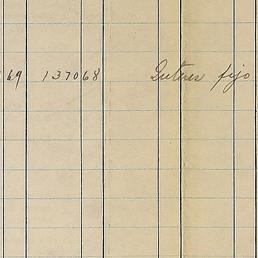 69 137068 Interes fijo